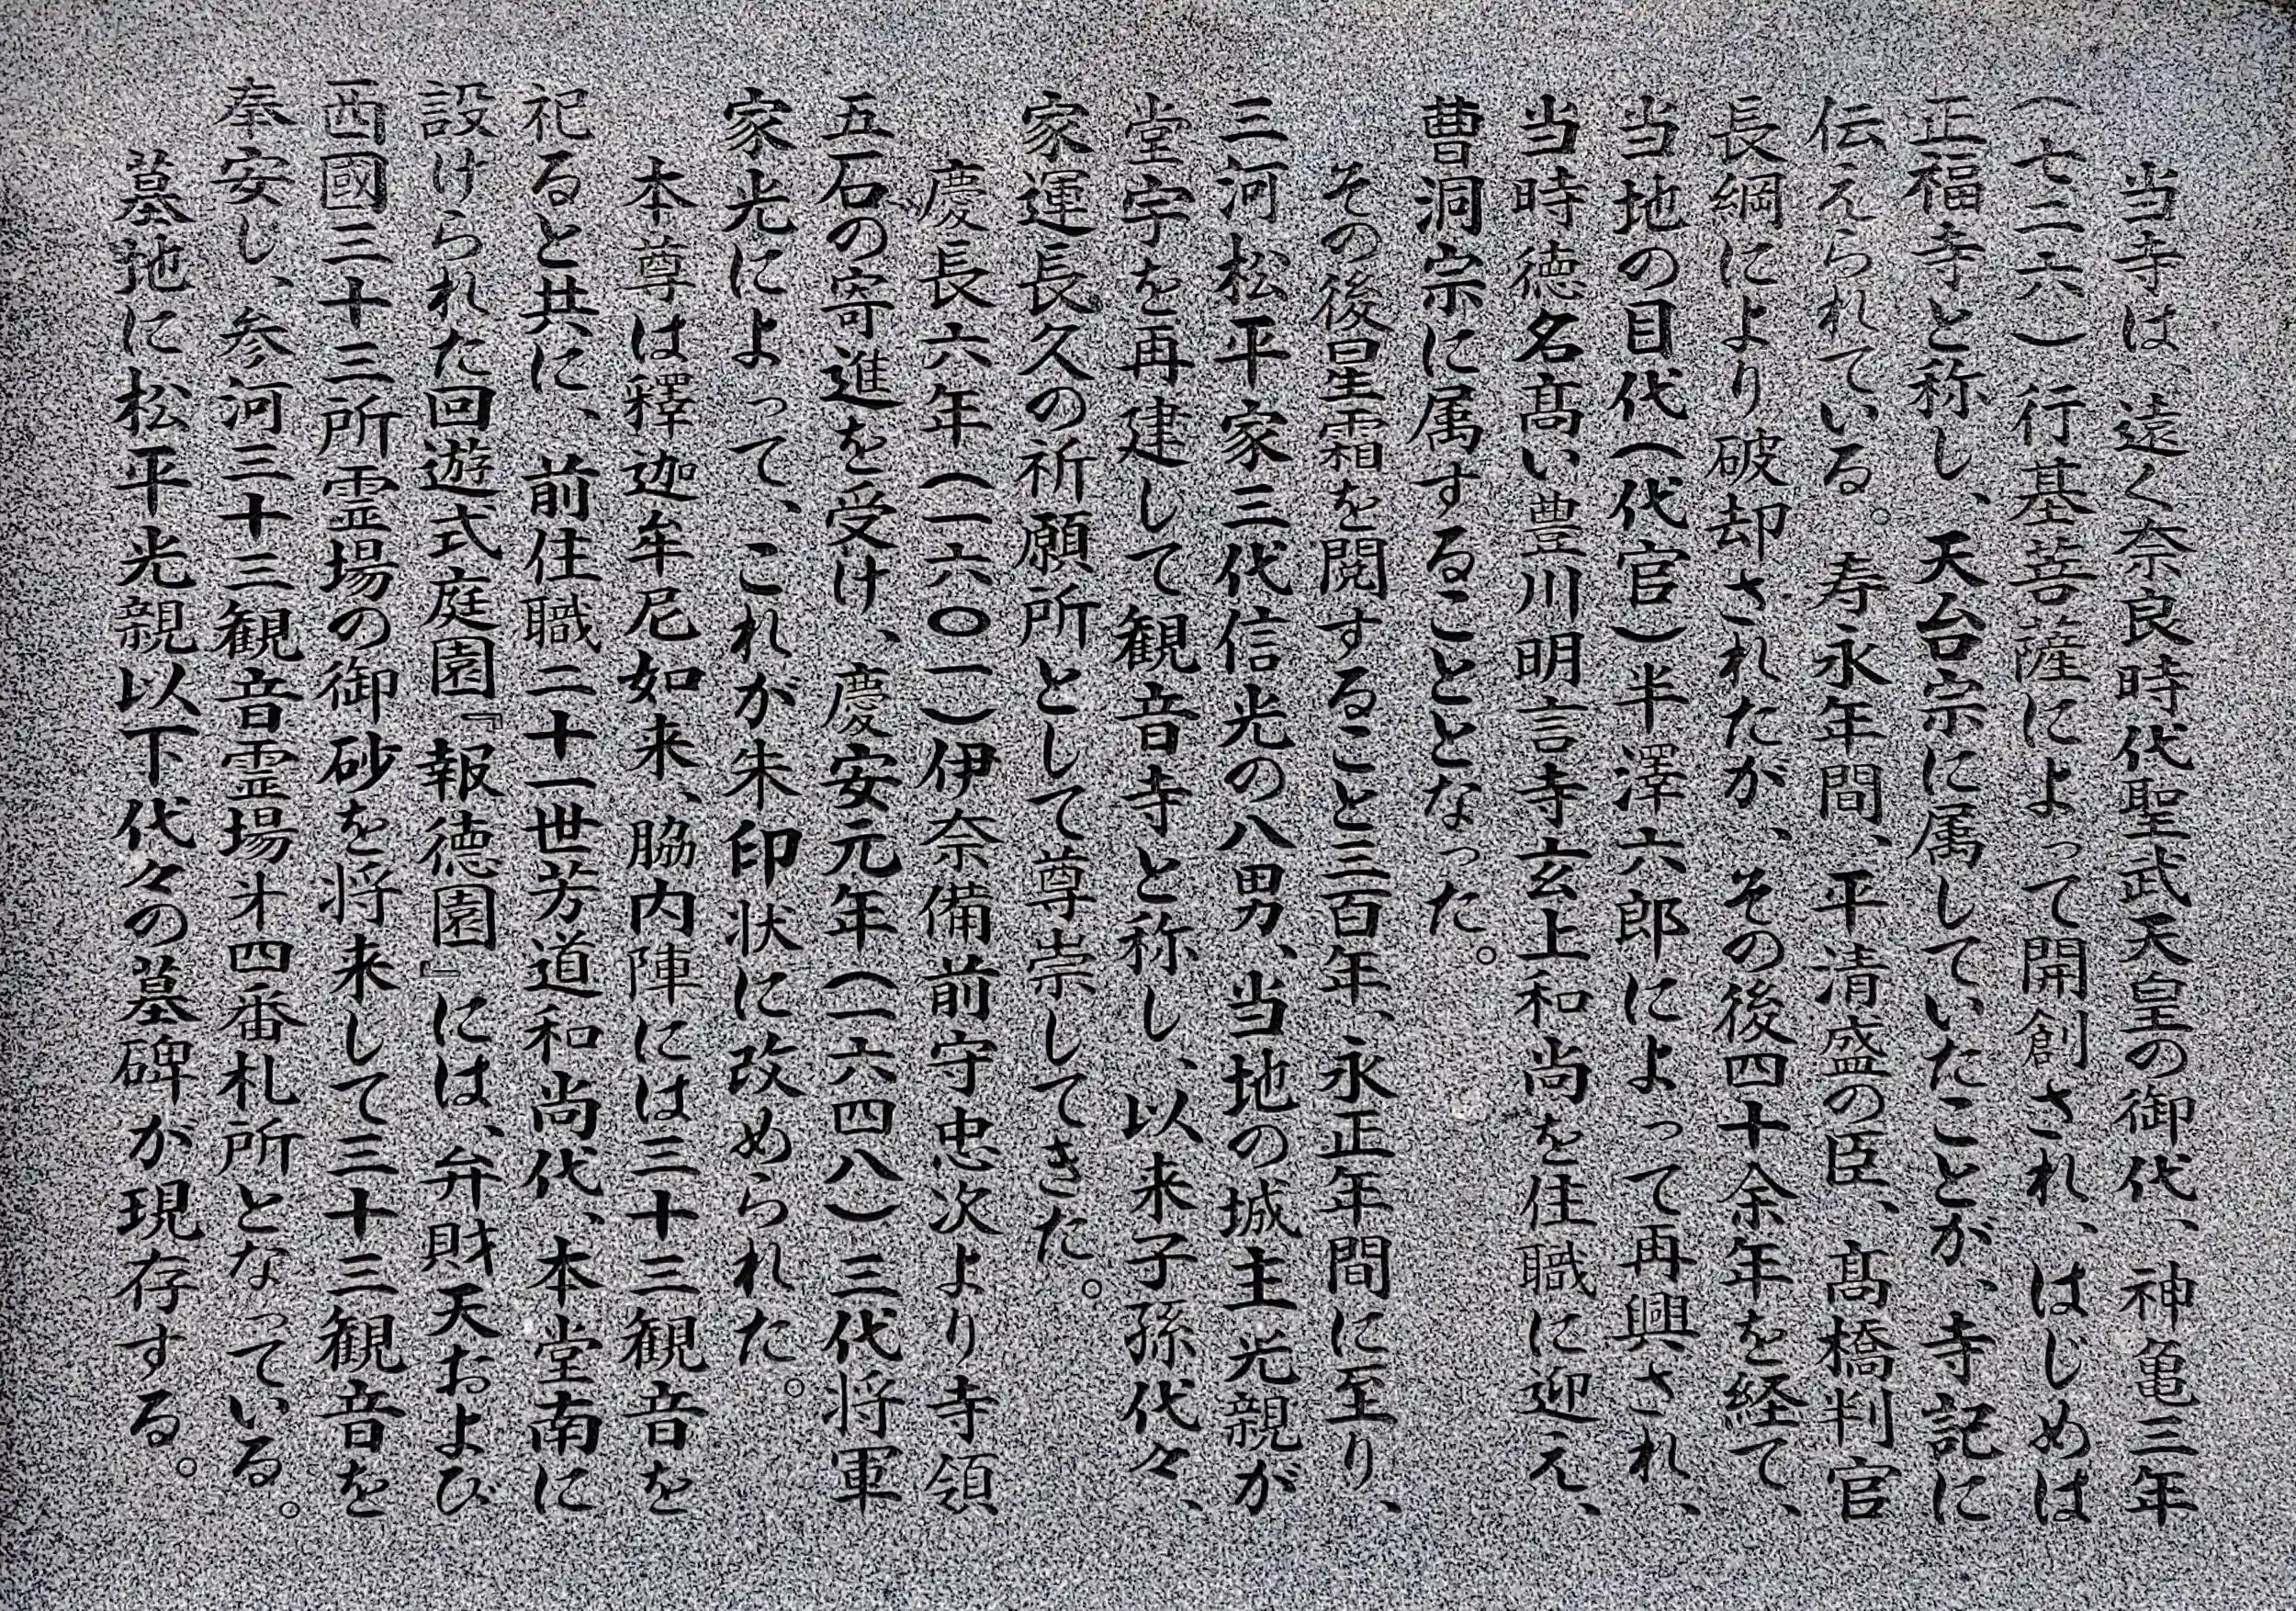 当寺は、遠く奈良時代聖武天皇の御代、神亀三年
(七二六)行基菩薩によって開創され、はじめは
正福寺と称し、天台宗に属していたことが、寺記に
伝えられている。寿永年間、平清盛の臣、髙橋判官
長綱により破却されたが、その後四十余年を経て、
当地の目代(代官)半澤六郎によって再興され、
当時徳名髙い豊川明言寺玄上和尚を住職に迎え、
曹洞宗に属することとなった。
その後星霜を閲すること三百年、永正年間に至り、
三河松平家三代信光の八男、当地の城主光親が
堂宇を再建して観音寺と称し、以来子孫代々、
家運長久の祈願所として尊崇してきた。
慶長六年(一六〇一)伊奈備前守忠次より寺領
五石の寄進を受け、慶安元年(一六四八)三代将軍
家光によって、これが朱印状に改められた。
本尊は釋迦牟尼如来、脇内陣には三十三観音を
祀ると共に、前住職二十一世芳道和尚代、本堂南に
設けられた回遊式庭園『報徳園』には、弁財天および
西國三十三所霊場の御砂を将来して三十三観音を
奉安し、参河三十三観音霊場㐧四番札所となっている。
墓地に松平光親以下代々の墓碑が現存する。